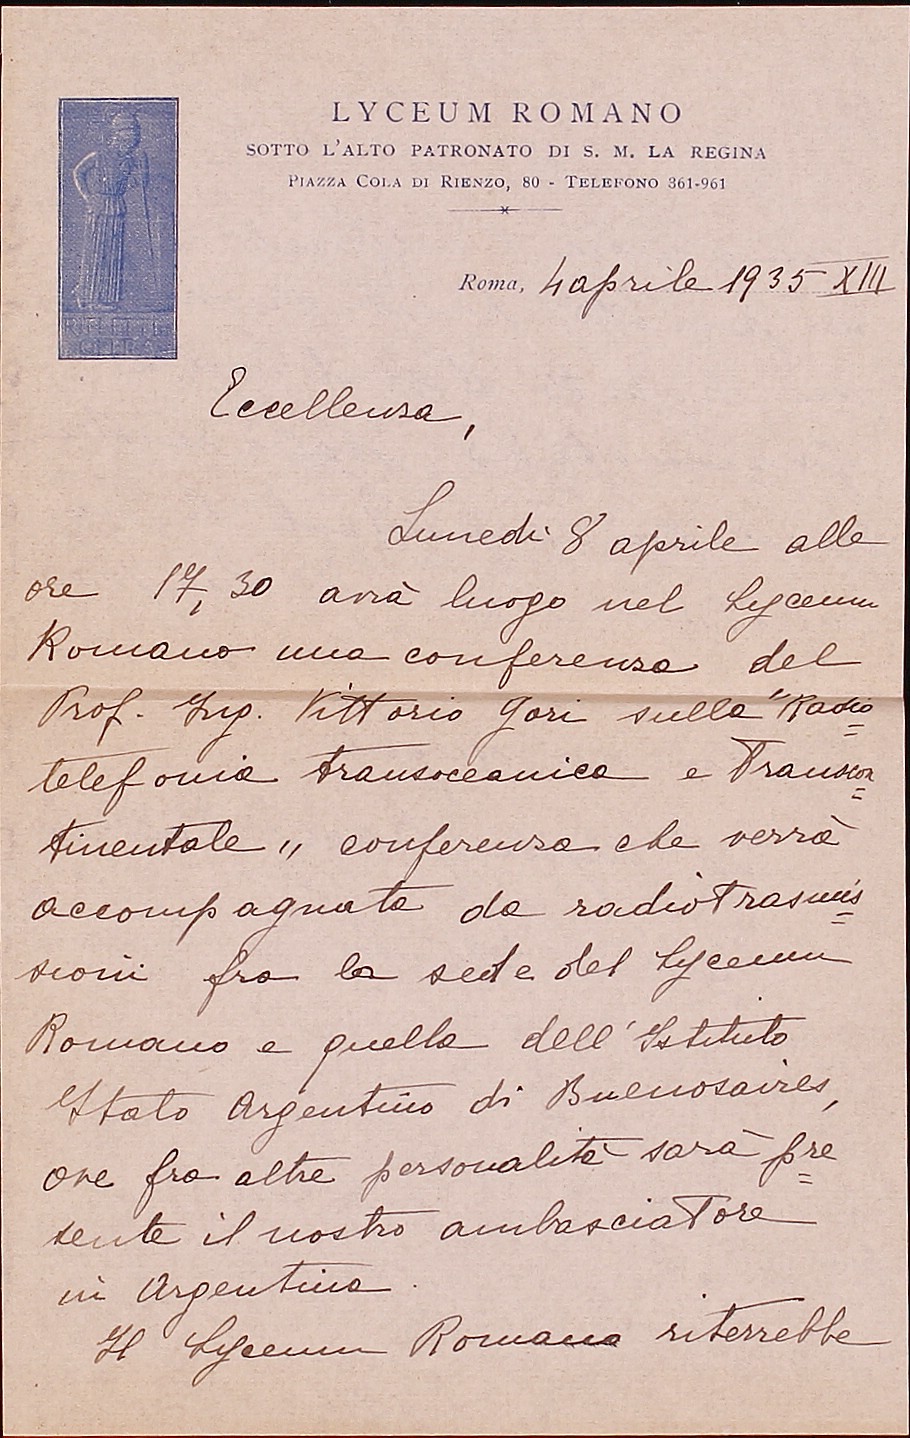 LYCEUM ROMANO
SOTTO L'ALTO PATRONATO DI S. M. LA REGINA
PIAZZA COLA DI RIENZO, 80 - TELEFONO 361-961
Roma, 4 aprile 1935 XIII
Eccellenza,
Lunedì 8 aprile alle
ore 17,30 avrà luogo nel Lyceum
Romano una conferenza del
Prof. Ing. Vittorio Gori sulla "Radio=
telefonia transoceanica e Transcon=
tinentale" conferenza che verrà
accompagnata da radiotrasmis=
sioni fra la sede del Lyceum
Romano e quella dell'Istituto
Italo Argentino di Buenosaires,
ove fra altre personalità sarà pre=
sente il nostro ambasciatore
in Argentina.
Il Lyceum Romano riterrebbe